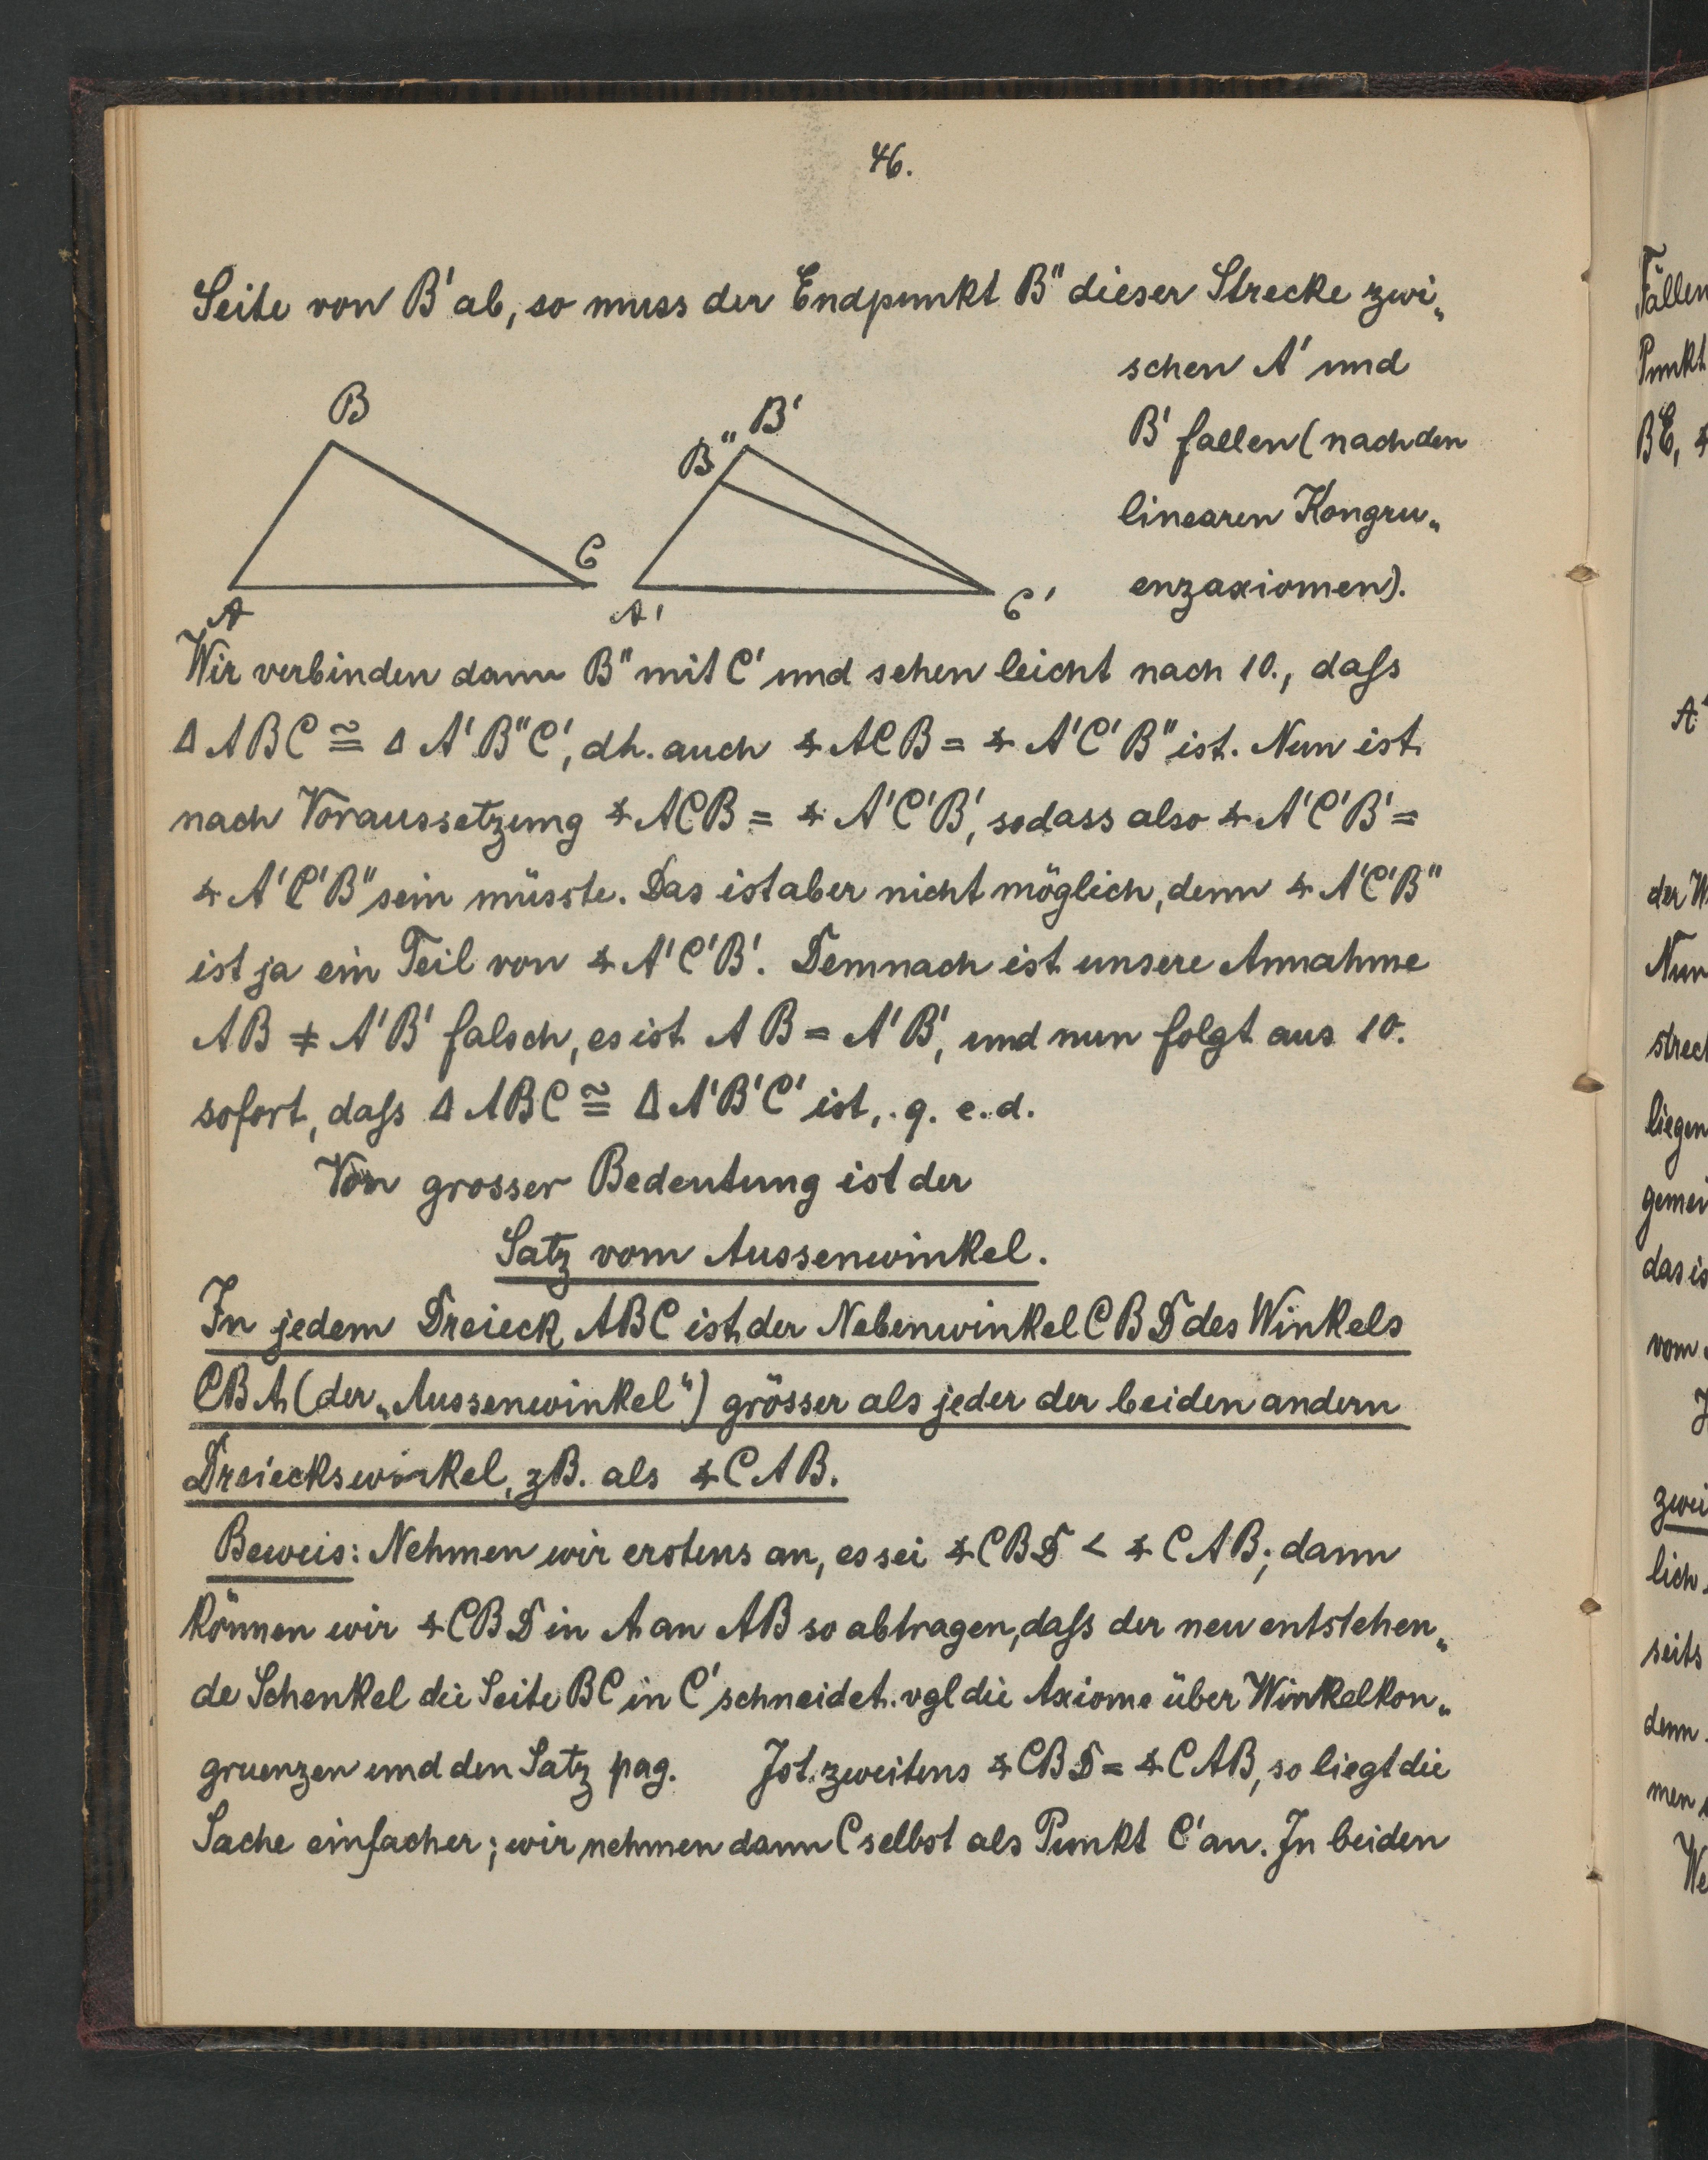 46.
Seite von B' ab, so muss der Endpunkt B" dieser Strecke zwi„
schen A' und
B' fallen (nach den
linearen Kongru„
enzaxiomen).
B
A
C
B'
B"
A'
C'
Wir verbinden dann B" mit C' und sehen leicht nach 10., daſs
Δ ABC ≅ Δ A'B"C', dh. auch ∡ ACB = ∡ A'C'B" ist. Nun ist
nach Voraussetzung ∡ ACB = ∡ A'C'B', sodass also ∡ A'C'B' =
∡ A'C'B" sein müsste. Das ist aber nicht möglich, denn ∡ A'C'B"
ist ja ein Teil von ∡ A'C'B'. Demnach ist unsere Annahme
AB ≠ A'B' falsch, es ist AB = A'B', und nun folgt aus 10.
sofort, daſs Δ ABC ≅ Δ A'B'C' ist, . q. e. d.
Von grosser Bedeutung ist der
Satz vom Aussenwinkel.
In jedem Dreieck ABC ist der Nebenwinkel CBD des Winkels
CBA (der „Aussenwinkel") grösser als jeder der beiden andern
Dreieckswinkel, zB. als ∡ CAB.
Beweis: Nehmen wir erstens an, es sei ∡ CBD < ∡ CAB; dann
können wir ∡ CBD in A an AB so abtragen, daſs der neu entstehen„
de Schenkel die Seite BC in C' schneidet. vgl die Axiome über Winkelkon„
gruenzen und den Satz pag. Ist zweitens ∡ CBD = ∡ CAB, so liegt die
Sache einfacher; wir nehmen dann C selbst als Punkt C' an. In beiden
Fällen
Punkt
BE, ∡
A
der W
Nun
strec
liegen
gemei
das is
vom
J
zwei
lich
seits
denn
men
We